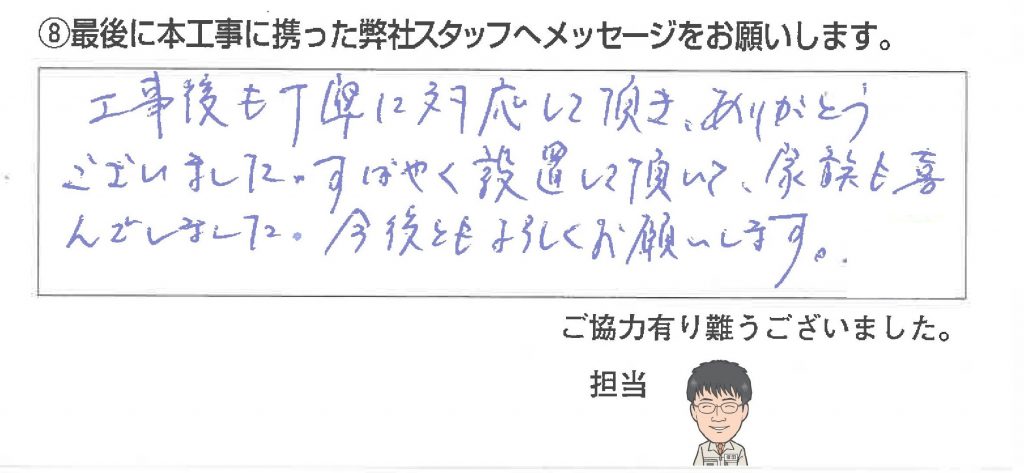 ⑧最後に本工事に携った弊社スタッフへメッセージをお願いします。
工事後も丁寧に対応して頂き、ありがとう
ございました。すばやく設置して頂いて、家族も喜
んでいました。今後ともよろしくお願いします。
ご協力有り難うございました。
担当